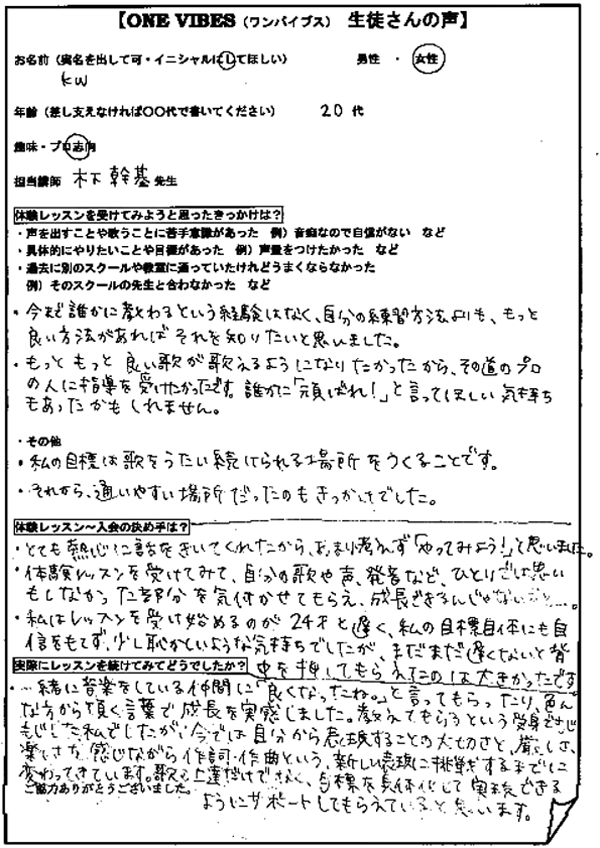 【ONE VIBES（ワンバイブス） 生徒さんの声】
お名前（実名を出して可・イニシャルにしてほしい） 男性 ・ 女性
KW
年齢（差し支えなければ〇〇代で書いてください） 20 代
趣味・プロ志向
担当講師 木下 幹基 先生
体験レッスンを受けてみようと思ったきっかけは？
・声を出すことや歌うことに苦手意識があった 例）音痴なので自信がない など
・具体的にやりたいことや目標があった 例）声量をつけたかった など
・過去に別のスクールや教室に通っていたけれどうまくならなかった
例）そのスクールの先生と合わなかった など
・今まで誰かに教わるという経験はなく、自分の練習方法よりも、もっと
良い方法があればそれを知りたいと思いました。
・もっともっと良い歌が歌えるようになりたかったから、その道のプロ
の人に指導を受けたかったです。誰かに「頑ばれ！」と言ってほしい気持ち
もあったかもしれません。
・その他
・私の目標は歌をうたい続けられる場所をつくることです。
・それから、通いやすい場所だったのもきっかけでした。
体験レッスン～入会の決め手は？
・とても熱心に話をきいてくれたから、あまり考えず「やってみよう！」と思いました。
・体験レッスンを受けてみて、自分の歌や声、発音など、ひとりでは思い
もしなかった部分を気付かせてもらえ、成長できるんじゃないかと…。
・私はレッスンを受け始めるのが24才と遅く、私の目標自体にも自
信をもてず、少し恥かしいような気持ちでしたが、まだまだ遅くないと背
中を押してもらえたのは大きかったです
実際にレッスンを続けてみてどうでしたか？
・一緒に音楽をしている仲間に「良くなったね。」と言ってもらったり、色ん
な方から頂く言葉で成長を実感しました。教えてもらうという受身で
した私でしたが、今では自分から表現することの大切さと、厳しさ、
楽しさを感じながら作詞・作曲という、新しい表現に挑戦するまでに
変わってきています。歌の上達だけでなく、目標を具体化して実現できる
ようにサポートしてもらえていると思います。
ご協力ありがとうございました。